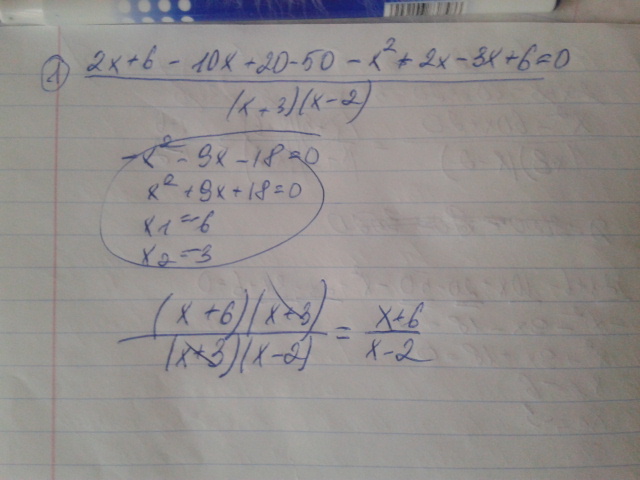 1) 2x+6 - 10x+20-50 - x²+2x-3x+6=0
(x+3)(x-2)
-x²-9x-18=0
x²+9x+18=0
x1=-6
x2=-3
(x+6)(x+3) = x+6
(x+3)(x-2) x-2